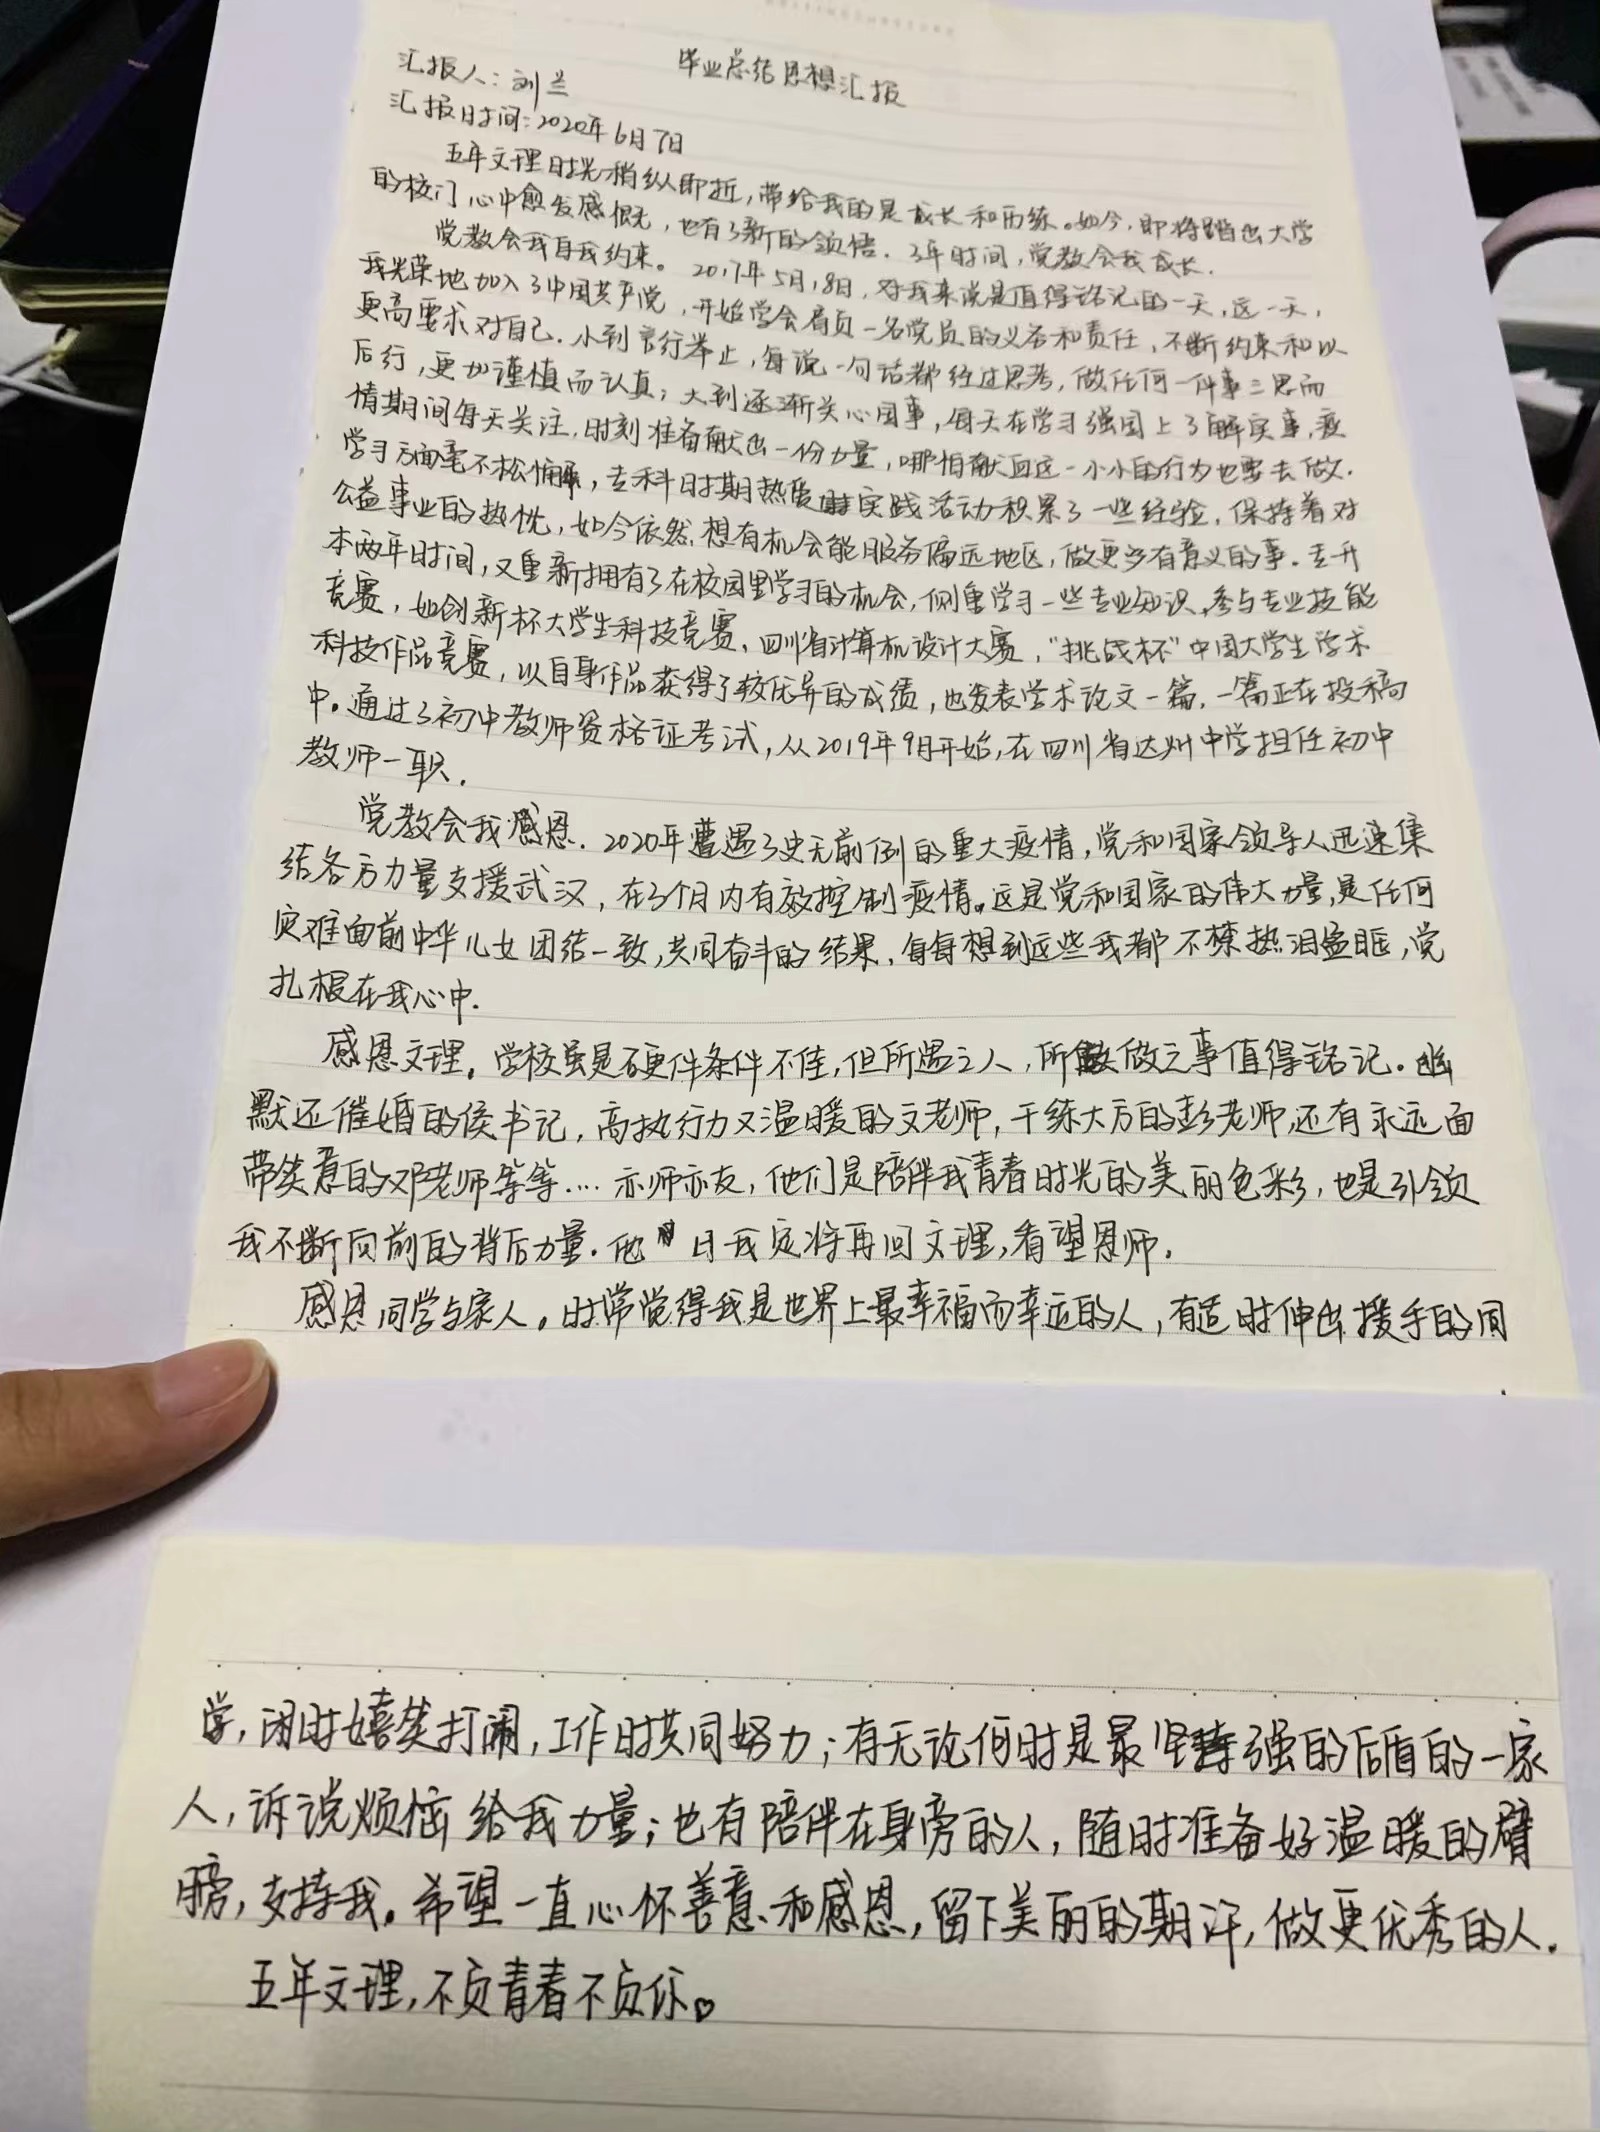 毕业总结思想汇报
汇报人：刘兰
汇报日时间：2020年6月7日
五年文理时光稍纵即逝，带给我的是成长和历练。如今，即将踏出大学
的校门心中愈发感慨，也有了新的领悟。3年时间，党教会我成长。
党教会我自我约束。2017年5月18日，对我来说是值得铭记的一天，这一天，
我光荣地加入了中国共产党，开始学会肩负一名党员的义务和责任，不断约束和以
更高要求对自己。小到言行举止，每说一句话都经过思考，做任何一件事三思而
后行，更加谨慎而认真；大到逐渐关心国事，每天在学习强国上了解实事，疫
情期间每天关注，时刻准备献出一份力量，哪怕献血这一小小的行为也要去做。
学习方面毫不松懈，专科时期热爱实践活动积累了一些经验，保持着对
公益事业的热忱，如今依然想有机会能服务偏远地区，做更多有意义的事。专升
本两年时间，又重新拥有了在校园里学习的机会，侧重学习一些专业知识，参与专业技能
竞赛，如创新杯大学生科技竞赛、四川省计算机设计大赛，“挑战杯”中国大学生学术
科技作品竞赛，以自身作品获得了较优异的成绩，也发表学术论文一篇，一篇正在投稿
中。通过了初中教师资格证考试，从2019年9月开始，在四川省达州中学担任初中
教师一职。
党教会我感恩。2020年遭遇了史无前例的重大疫情，党和国家领导人迅速集
结各方力量支援武汉，在3个月内有效控制疫情。这是党和国家的伟大力量，是任何
灾难面前中华儿女团结一致，共同奋斗的结果，每每想到这些我都不禁热泪盈眶，党
扎根在我心中。
感恩文理。学校虽是硬件条件不佳，但所遇之人，所做之事值得铭记。幽
默还催婚的侯书记，高执行力又温暖的文老师，干练大方的彭老师，还有永远面
带笑意的邓老师等等….亦师亦友，他们是陪伴我青春时光的美丽色彩，也是引领
我不断向前的背后力量。他日我定将再回文理，看望恩师。
感恩同学与家人。时常觉得我是世界上最幸福而幸运的人，有适时伸出援手的同
学，闲时嬉笑打闹，工作时共同努力；有无论何时是最坚强的后盾的一家
人，诉说烦恼给我力量；也有陪伴在身旁的人，随时准备好温暖的臂
膀，支持我。希望一直心怀善意和感恩，留下美丽的期许，做更优秀的人。
五年文理，不负青春不负你。♡